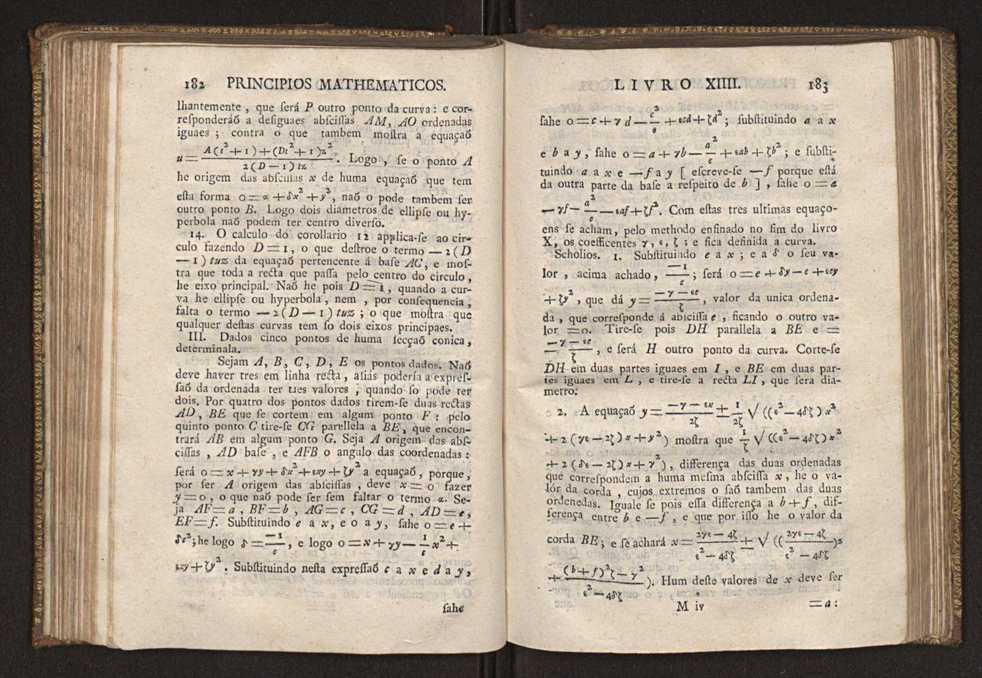 182 PRINCIPIOS MATHEMATICOS.
lhantemente , que ſerá P outro ponto da curva : e cor-
reſponderáõ a deſiguaes abſciſſas AM, AO ordenadas
iguaes ; contra o que tambem moſtra a equaçaõ
u = A(t²+1)+(Dt²+1)z² / 2(D−1)tz . Logo , ſe o ponto A
he origem das abſciſſas x de huma equaçaõ que tem
eſta forma 0 = α + δx² + y², naõ o pode tambem ſer
outro ponto B. Logo dois diametros de ellipſe ou hy-
perbola naõ podem ter centro diverſo.
14. O calculo do corollario 12 applica-ſe ao cir-
culo fazendo D = 1, o que deſtroe o termo — 2 (D
— 1) tuz da equaçaõ pertencente á baſe AC, e moſ-
tra que toda a recta que paſſa pelo centro do circulo ,
he eixo principal. Naõ he pois D = 1, quando a cur-
va he ellipſe ou hyperbola , nem , por conſequencia ,
falta o termo — 2 (D — 1) tuz ; o que moſtra que
qualquer deſtas curvas tem ſo dois eixos principaes.
III. Dados cinco pontos de huma ſecçaõ conica,
determinala.
Sejam A, B, C, D, E os pontos dados. Naõ
deve haver tres em linha recta , aliás poderia a expreſ-
ſaõ da ordenada ter ties valores , quando ſo pode ter
dois. Por quatro dos pontos dados tirem-ſe duas rectas
AD, BE que ſe cortem em algum ponto F : pelo
quinto ponto C tire-ſe CG parellela a BE, que encon-
trará AB em algum ponto G. Seja A origem das abſ-
ciſſas , AD baſe , e AFB o angulo das coordenadas :
ſerá 0 = x + γy + δx² + εxy + ζy² a equaçaõ, porque,
por ſer A origem das abſciſſas , deve x = 0 fazer
y = 0 , o que naõ pode ſer ſem faltar o termo α. Se-
ja AF = a , BF = b , AG = c , CG = d , AD = e,
EF = f. Subſtituindo e a x, e 0 a y, ſahe 0 = e +
δe²; he logo δ = −1/e , e logo 0 = x + γy — 1/e x² +
εxy + ζy² . Subſtituindo neſta expreſſaõ c a x e d a y,
ſahe
LIVRO XIIII. 183
ſahe 0 = c + γd — c²/e + εcd + ζd² ; ſubſtituindo a a x
e b a y , ſahe 0 = a + γb — a²/e + εab + ζb² ; e ſubſti-
tuindo a a x e — f a y [ eſcreve-ſe — f porque eſtá
da outra parte da baſe a reſpeito de b ] , ſahe 0 = a
— γf — a²/e — εaf + ζf². Com eſtas tres ultimas equaço-
ens ſe acham , pelo methodo enſinado no fim do livro
X, os coefficentes γ, ε, ζ : e fica definida a curva.
Scholios. 1. Subſtituindo e a x ; e a δ o ſeu va-
lor , acima achado , −1/e ; ſerá 0 = e + γy — e + εey
+ ζy² , que dá y = −γ−εe / ζ , valor da unica ordena-
da , que correſponde á abſciſſa e , ficando o outro va-
lor = 0. Tire-ſe pois DH parallela a BE e =
−γ−εe / ζ , e ſerá H outro ponto da curva. Corte-ſe
DH em duas partes iguaes em I , e BE em duas par-
tes iguaes em L , e tire-ſe a recta LI , que ſera dia-
metro.
2. A equaçaõ y = −γ−εx / 2ζ ± 1/2ζ √((ε²−4δζ)x²
+ 2(γε−2ζ)x + γ²) moſtra que 1/ζ √((ε²−4δζ)x²
+ 2(γε−2ζ)x + γ²) , differença das duas ordenadas
que correſpondem a huma meſma abſciſſa x , he o va-
lor da corda , cujos extremos o ſaõ tambem das duas
ordenedas. Iguale ſe pois eſſa differença a b + f , dif-
ferença entre b e — f , e que por iſſo he o valor da
corda BE ; e ſe achará x = 2γε−4ζ / ε²−4δζ ± √((2γε−4ζ / ε²−4δζ)²
+ (b+f)²ζ−γ² / ε²−4δζ ). Hum deſte valores de x deve ſer
M iv = a :